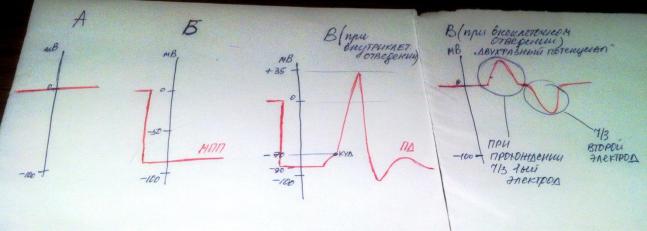 А
мВ
0
-100
Б
мВ
0
-50
МПП
-100
В (при
внутриклет.
отведении)
мВ
+35
0
-70
КУД
-90
-100
ПД
В (при внеклеточном
отведении)
"двухфазный потенциал"
мВ
0
-100
ПРИ
ПРОХОЖДЕНИИ
Ч/З 1вый
ЭЛЕКТРОД
Ч/З
ВТОРОЙ
ЭЛЕКТРОД